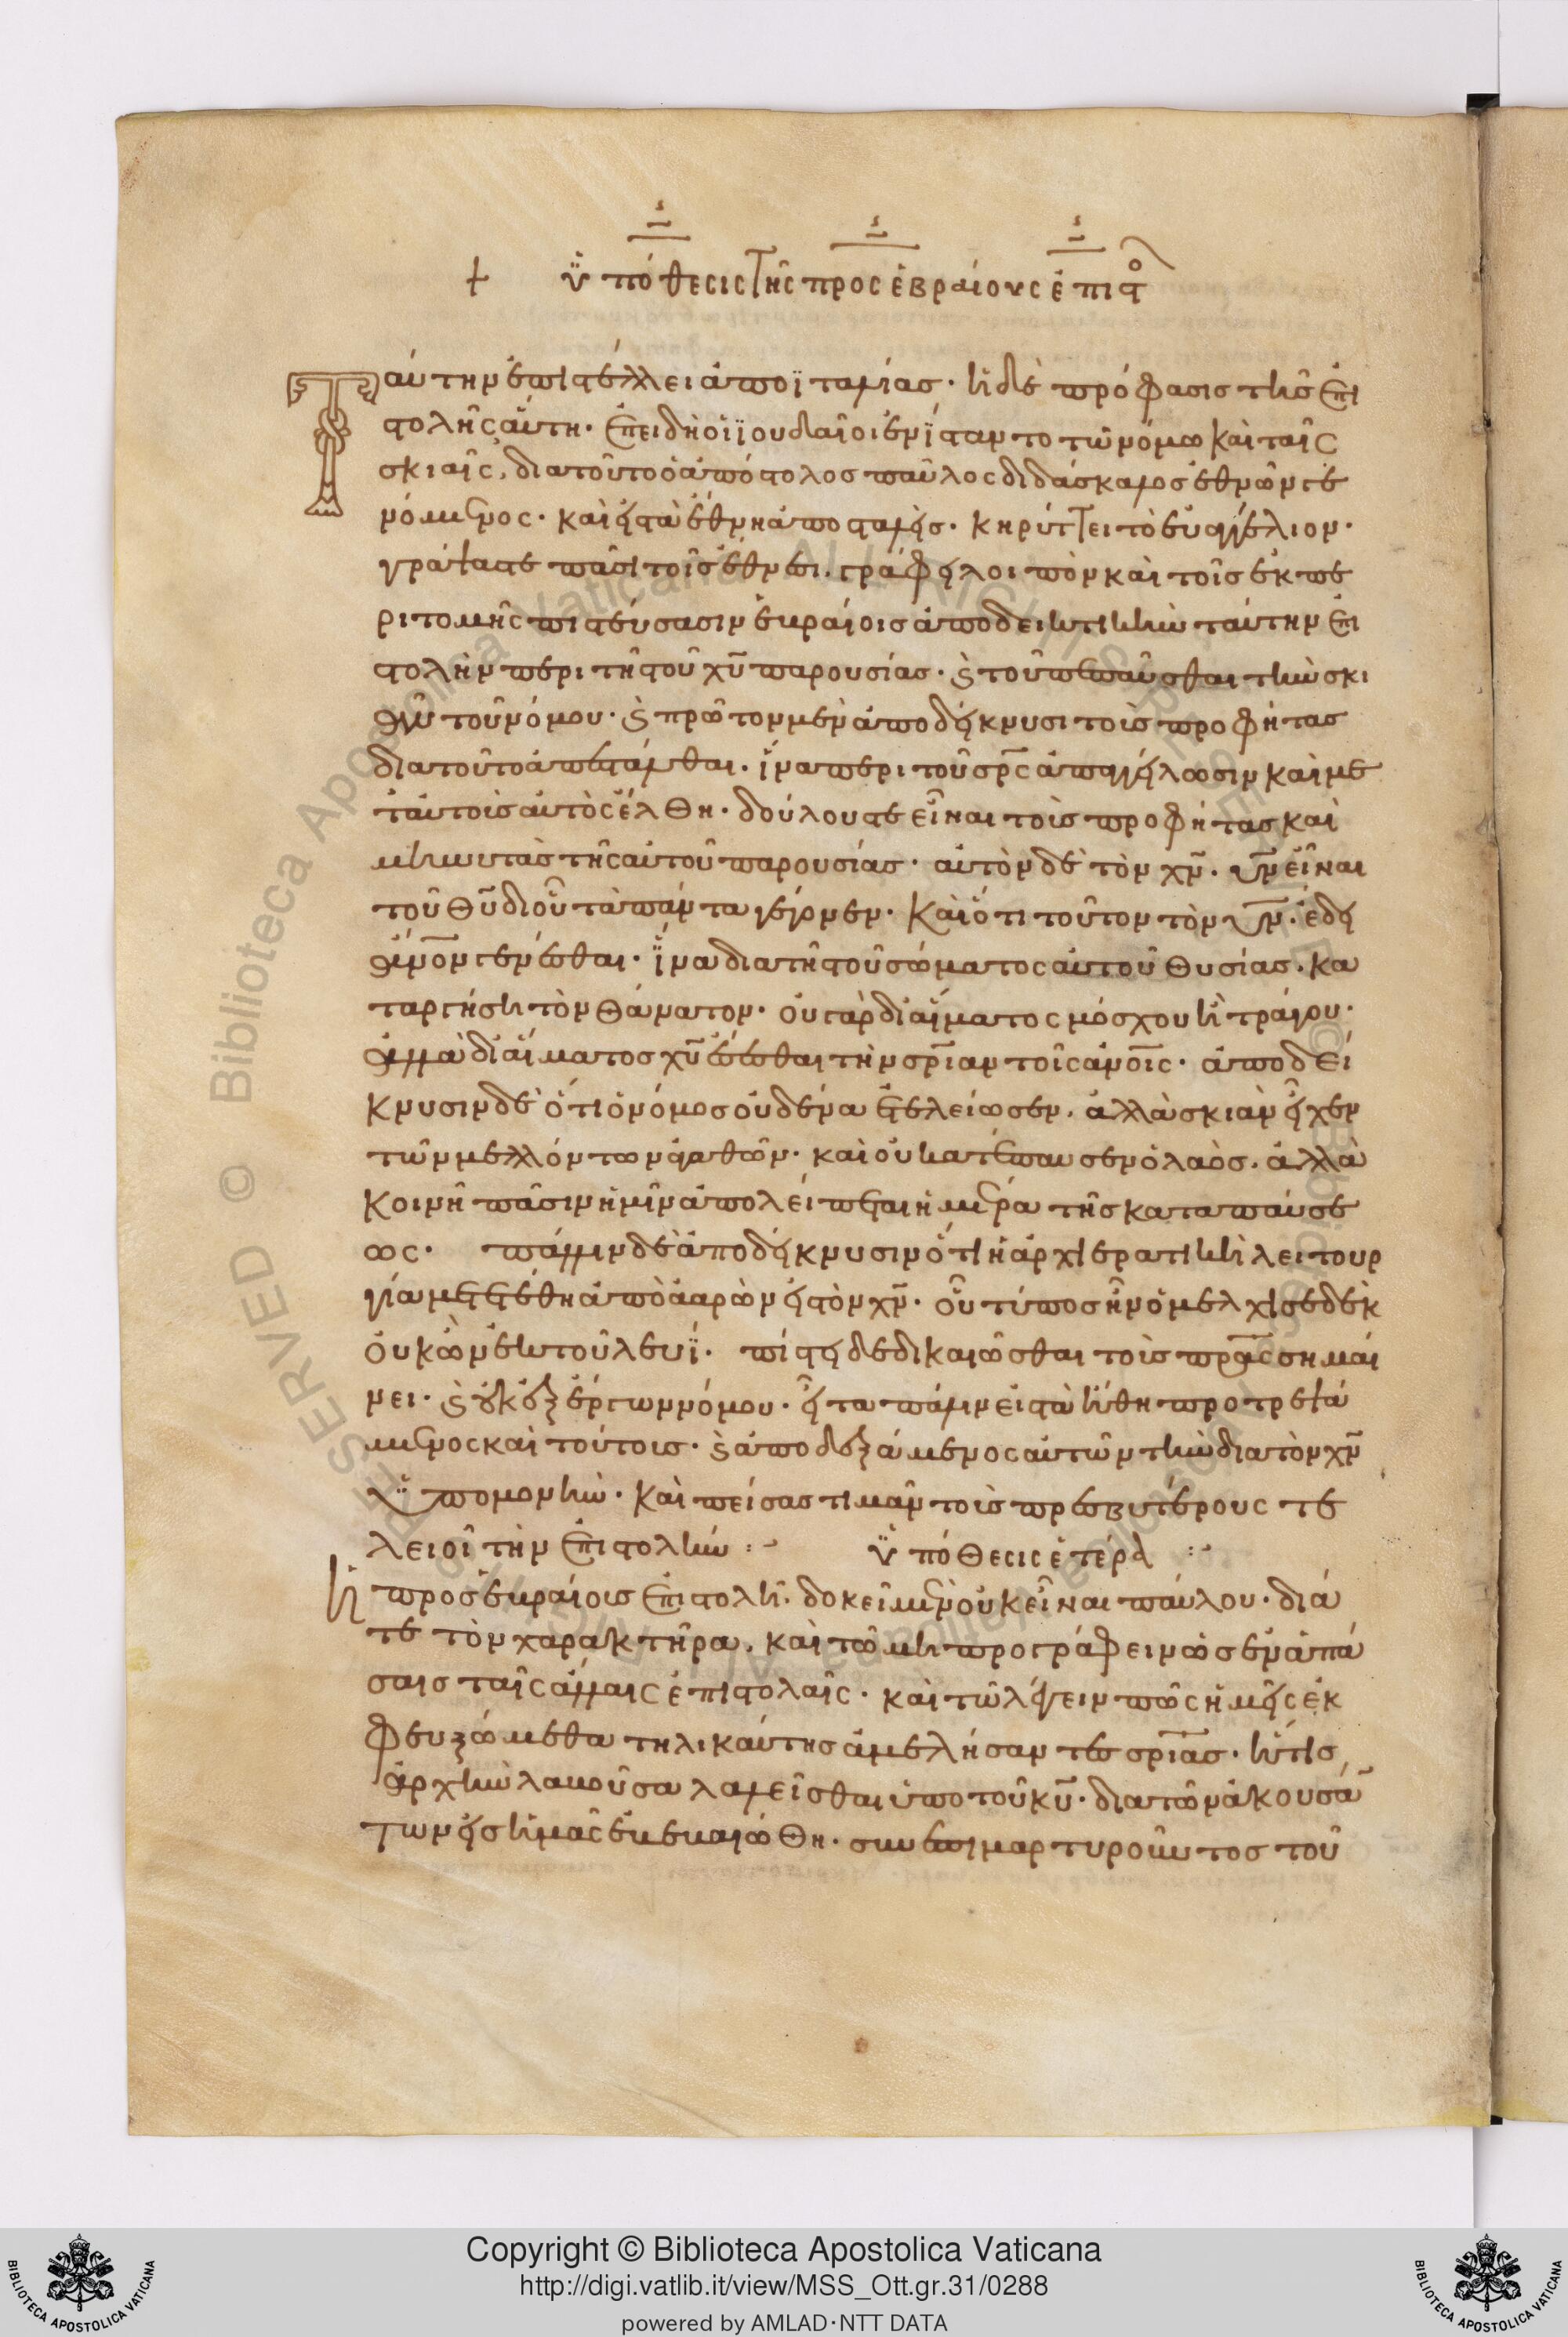 + ὑπόθεσις τῆς πρὸς ἑβραίους ἐπιστο
Ταύτην ἐπιστέλλει ἀπο ϊταλίας· ἡ δὲ πρόφασις τῆς ἐπι
στολῆς αὕτη· ἐπειδὴ οἱ ϊουδαῖοι ἐνΐσταντο τῶ νόμω καὶ ταῖς
σκιαῖς, διατοῦτο ὁ ἀπόστολος παῦλος διδάσκαλος ἐθνῶν γε
νόμενος· καὶ εἰς τὰ ἔθνη ἀποσταλεὶς· κηρύττει τὸ εὐαγγέλιον·
γράψας τε πᾶσι τοῖς ἔθνεσι. γράφει λοιπὸν καὶ τοῖς ἐκ πε
ριτομῆς πιστεύσασιν ἑβραίοις ἀποδεικτικὴν ταύτην ἐπι
στολὴν περι τῆς τοῦ χυ παρουσίας· καὶ τοῦ πεπαῦσθαι τὴν σκι
ὰν τοῦ νόμου· καὶ πρῶτον μὲν ἀποδείκνυσι τοὺς προφήτας
διατοῦτο ἀπεστάλθαι. ἵνα περι τοῦ σρς ἀπαγγείλωσιν καὶ με
τ αὐτοὺς αὐτὸς ἔλθη· δούλους τε εἶναι τοὺς προφήτας καὶ
μηνυτὰς τῆς αὐτοῦ παρουσίας· αὐτὸν δὲ τὸν χν· υν εἶναι
τοῦ θυ δι οὗ τὰ πάντα γέγονεν· καὶ ὅτι τοῦτον τὸν υν· ἔδει
ἄνον γενέσθαι· ἵνα δια τῆς τοῦ σώματος αὐτοῦ θυσίας. κα
ταργήση τὸν θάνατον· οὐ γὰρ δι αἵματος μόσχου ἢ τράγου·
ἀλλὰ δι αἵματος χυ ἔσεσθαι τὴν σριαν τοῖς ἀνοις· ἀποδεί
κνυσιν δὲ ὅτι ὁ νόμος οὐδένα ἐτελείωσεν. ἀλλὰ σκιὰν εἶχεν
τῶν μελλόντων ἀγαθῶν· καὶ οὐ κατέπαυσεν ὁ λαὸς. ἀλλὰ
κοινῆ πᾶσιν ἡμῖν ἀπολείπεται ἡ μέρα τῆς καταπαύσε
ως· πάλιν δὲ ἀποδείκνυσιν ὅτι ἡ ἀρχιερατικὴ λειτουρ
γία μετετέθη ἀπὸ ἀαρὼν εἰς τὸν χν· οὗ τύπος ἦν ὁ μελχισεδὲκ
οὐκ ὢν ἐκ τοῦ λευΐ· πίστει δεδικαιῶσθαι τοὺς πρας σημαί
νει· καὶ οὐκ ἐξ ἔργων νόμου· εἶτα πάλιν εἰς τὰ ἤθη προτρεψά
μενος καὶ τούτους· καὶ ἀποδεξάμενος αὐτῶν τὴν διὰ τὸν χν
ὑπομονὴν· καὶ πείσας τιμᾶν τοὺς πρεσβυτέρους τε
λειοῖ τὴν ἐπιστολήν :- ὑπόθεσις ἑτέρα :-
ἡ πρὸς ἑβραίους ἐπιστολὴ. δοκεῖ μὲν οὐκ εἶναι παύλου· διά
τε τὸν χαρακτῆρα. καὶ τῶ μὴ προγράφειν ὡς ἐν ἁπά
σαις ταῖς ἄλλαις ἐπιστολαῖς· καὶ τῶ λέγειν πῶς ἡμεῖς ἐκ
φευξώμεθα τηλικαύτης ἀμελήσαντες σριας· ἥτις
ἀρχὴν λαβοῦσα λαλεῖσθαι ὑπο τοῦ κυ· διὰ τῶν ἀκουσά
των εἰς ἡμᾶς ἐβεβαιώθη· συνεπιμαρτυροῦντος τοῦ
Copyright © Biblioteca Apostolica Vaticana
http://digi.vatlib.it/view/MSS_Ott.gr.31/0288
powered by AMLAD·NTT DATA